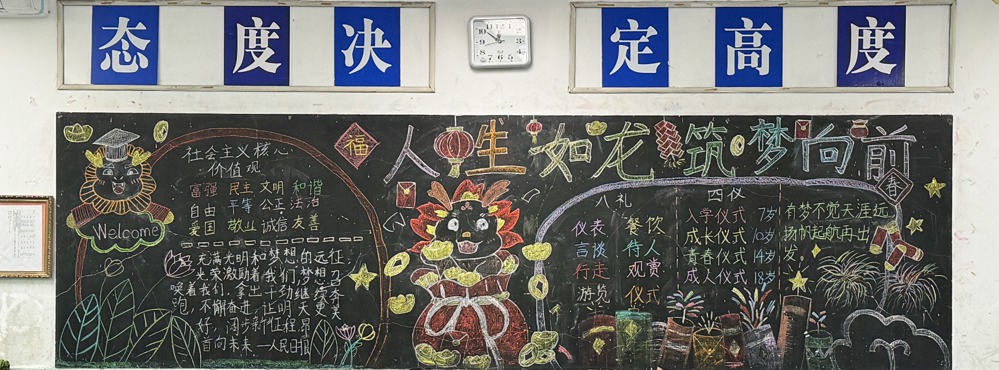 态度决
定高度
人生如龙 筑梦向前
福
春
Welcome
社会主义核心
价值观
富强 民主 文明 和谐
自由 平等 公正 法治
爱国 敬业 诚信 友善
充满光明和梦想的远征
光荣激励着我们,梦想
唤着我们,拿出干劲继续奋
跑,不懈奋进,证明天更美
好,阔步新征程 昂
首向未来 —人民日报
八礼
仪表 餐饮
言谈 待人
行走 观赏
游览 仪式
四仪
入学仪式 7岁
成长仪式 10岁
青春仪式 14岁
成人仪式 18岁
有梦不觉天涯远
扬帆起航再出
发。